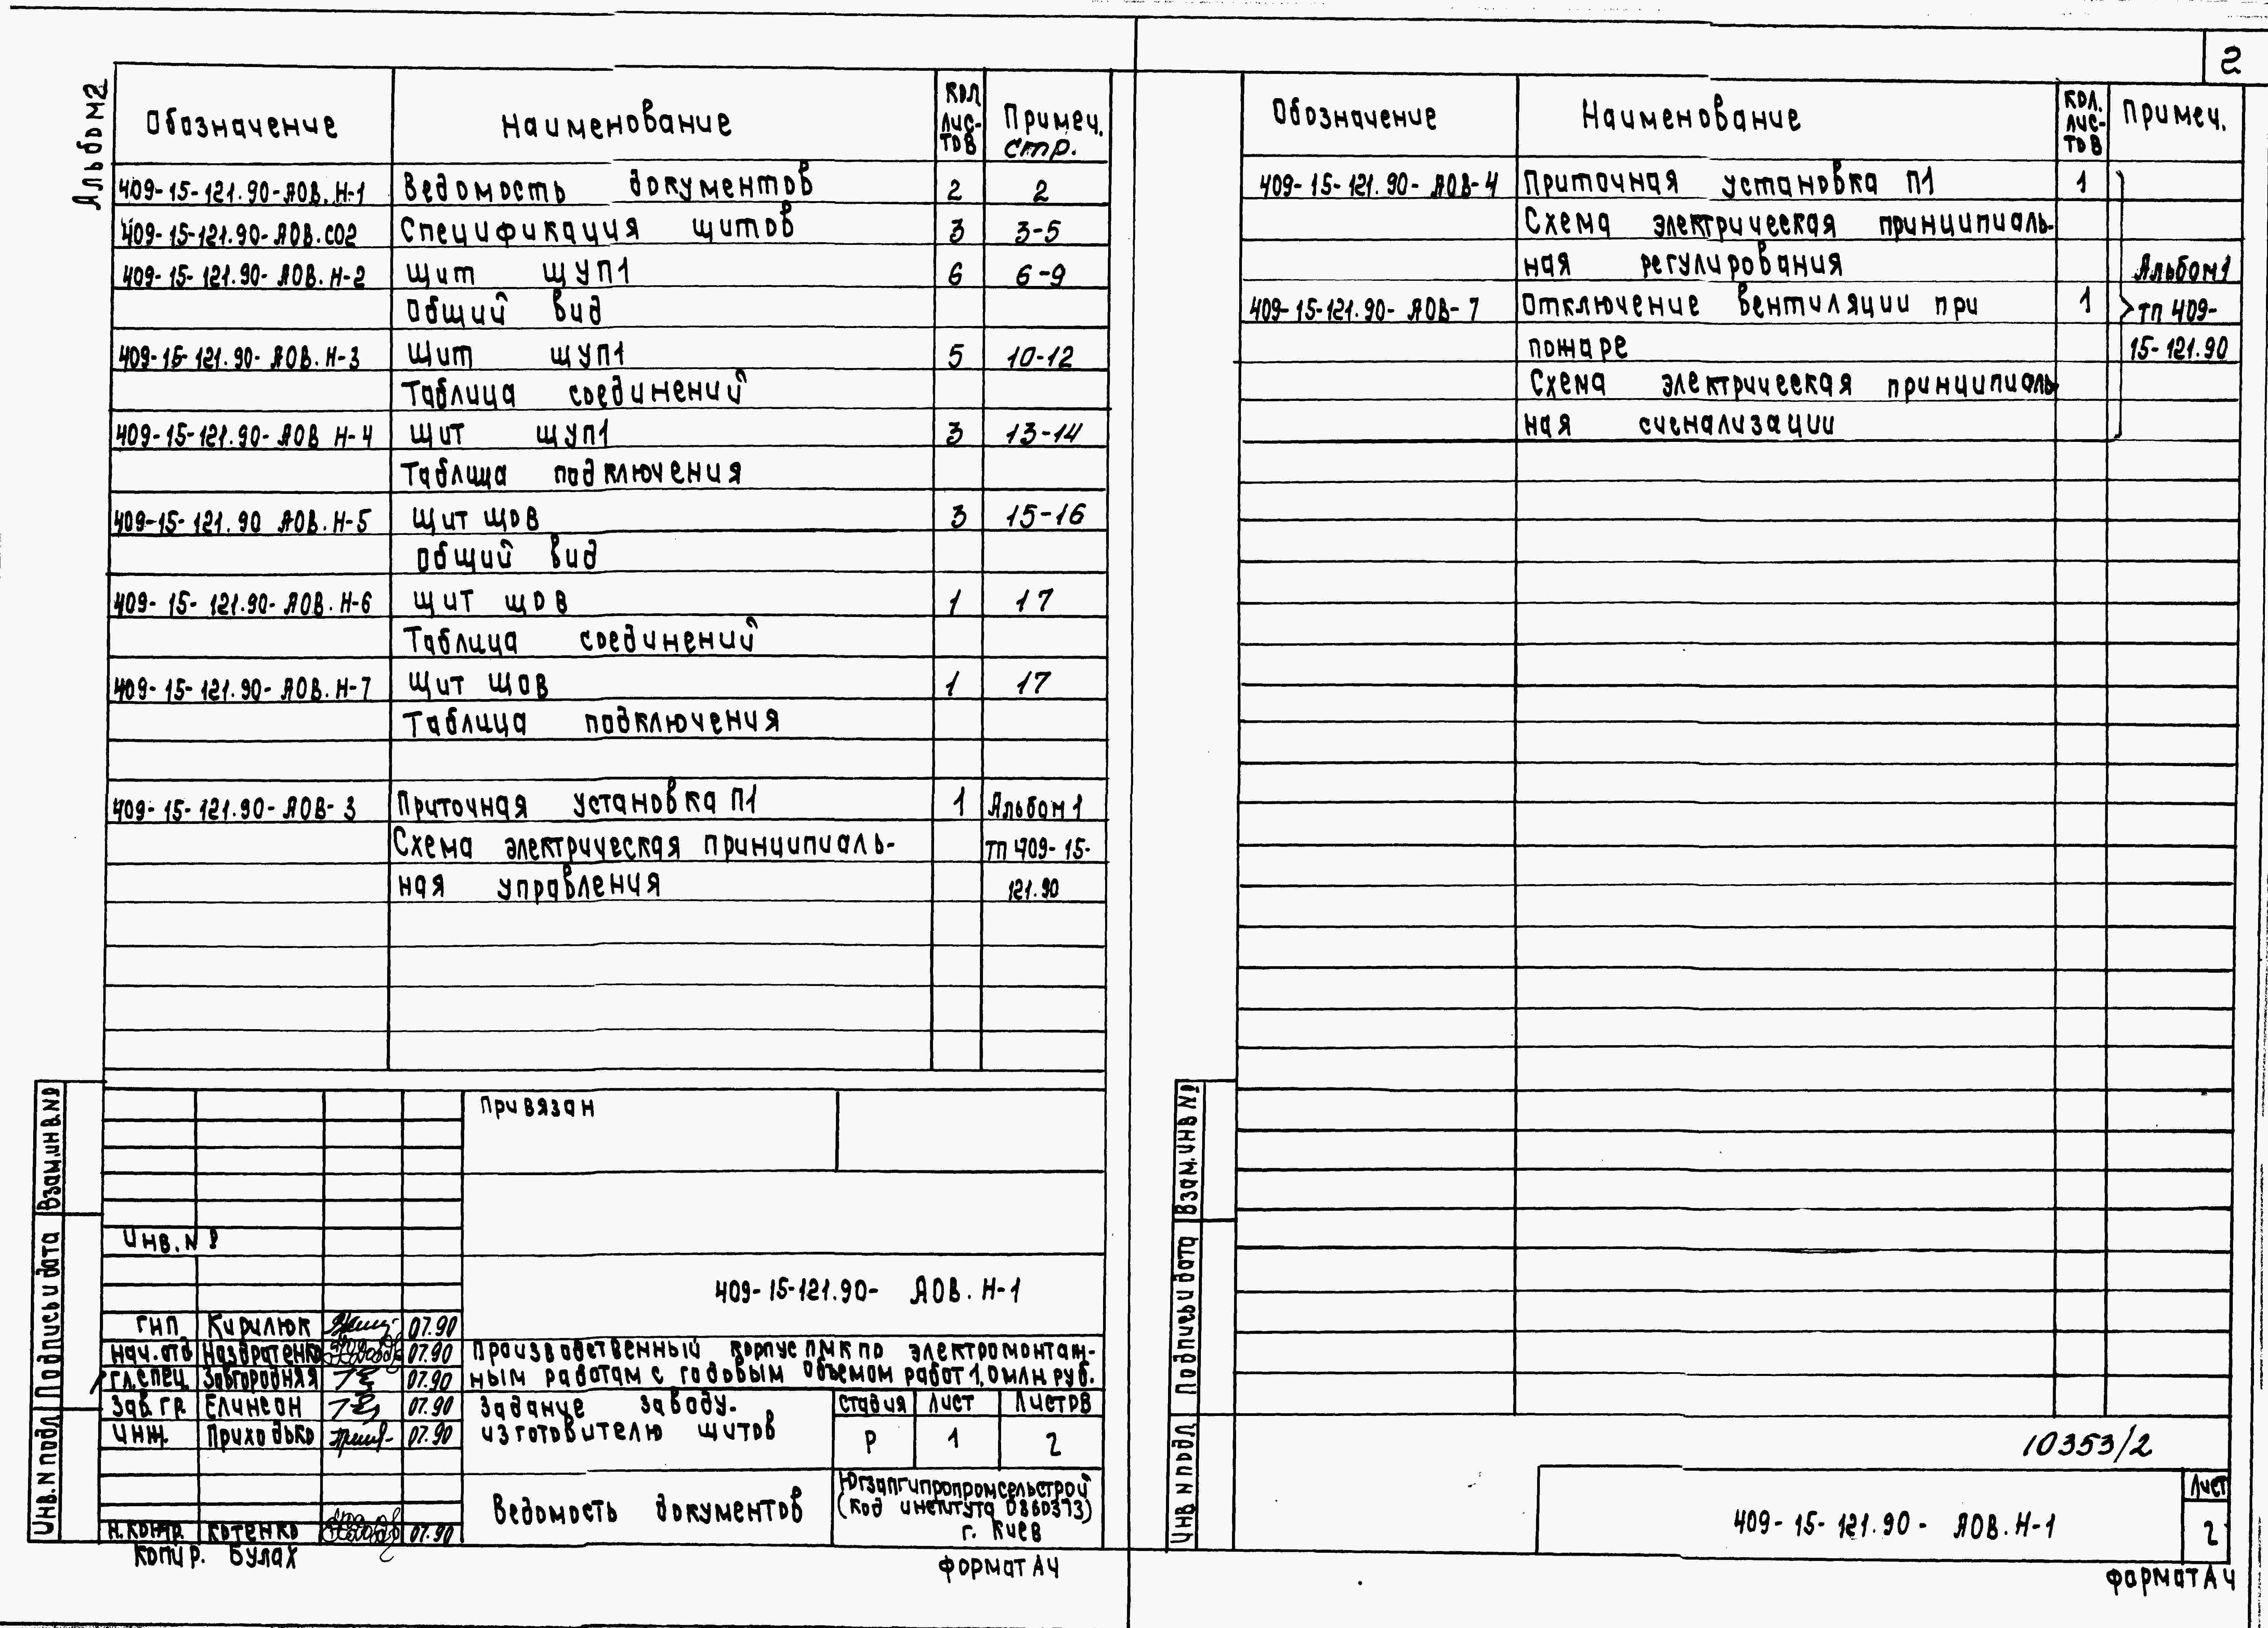 2
Альбом 2
Обозначение Наименование Кол лис-тов Примеч. стр.
409-15-121.90-АОВ.Н-1 Ведомость документов 2 2
409-15-121.90-АОВ.СО2 Спецификация щитов 3 3-5
409-15-121.90-АОВ.Н-2 Щит ЩУП1 6 6-9
Общий вид
409-15-121.90-АОВ.Н-3 Щит ЩУП1 5 10-12
Таблица соединений
409-15-121.90-АОВ Н-4 Щит ЩУП1 3 13-14
Таблица подключения
409-15-121.90 АОВ.Н-5 Щит ЩОВ 3 15-16
Общий вид
409-15-121.90-АОВ.Н-6 Щит ЩОВ 1 17
Таблица соединений
409-15-121.90-АОВ.Н-7 Щит ЩОВ 1 17
Таблица подключения
409-15-121.90-АОВ-3 Приточная установка П1 1 Альбом 1
Схема электрическая принципиаль- ТП 409-15-
ная управления 121.90
Привязан
Инв.№
409-15-121.90- АОВ.Н-1
ГИП Кирилюк 07.90
Нач.отд Наздратенко 07.90
Гл.спец. Завгородняя 07.90
Зав.гр. Елинсон 07.90
Инж. Приходько 07.90
Н.контр. Котенко 07.90
Производственный корпус ПМК по электромонтаж-
ным работам с годовым объемом работ 1,0 млн.руб.
Задание заводу-
изготовителю щитов
Стадия Лист Листов
Р 1 2
Ведомость документов
Югзапгипропромсельстрой
(код института 0860373)
г. Киев
Копир. Булах
Формат А4
Взам.инв.№
Подпись и дата
Инв.N подл
Обозначение Наименование Кол. лис-тов Примеч.
409-15-121.90-АОВ-4 Приточная установка П1 1
Схема электрическая принципиаль-
ная регулирования Альбом 1
409-15-121.90-АОВ-7 Отключение вентиляции при 1 ТП 409-
пожаре 15-121.90
Схема электрическая принципиаль
ная сигнализации
Взам.инв №
Подпись и дата
Инв N подл
10353/2
409-15-121.90- АОВ.Н-1
Лист
2
Формат А4